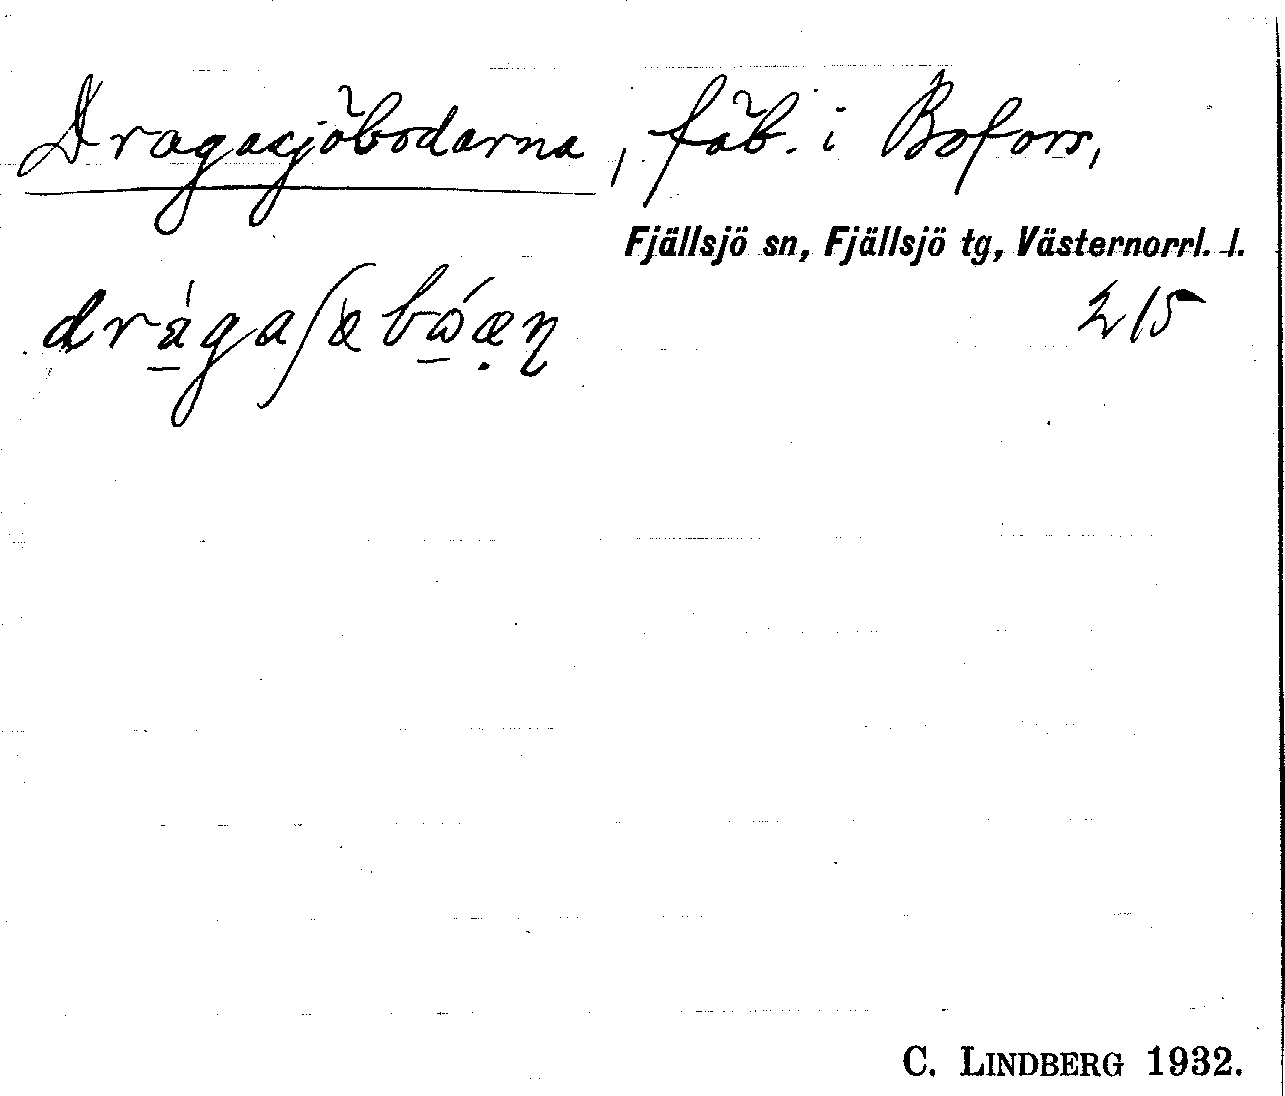 Dragasjöbodarna, fäb. i Bofors,
Fjällsjö sn, Fjällsjö tg, Västernorrl. l.
drá̱gaʃæbώ̱æ̣ŋ 2/5
C. LINDBERG 1932.